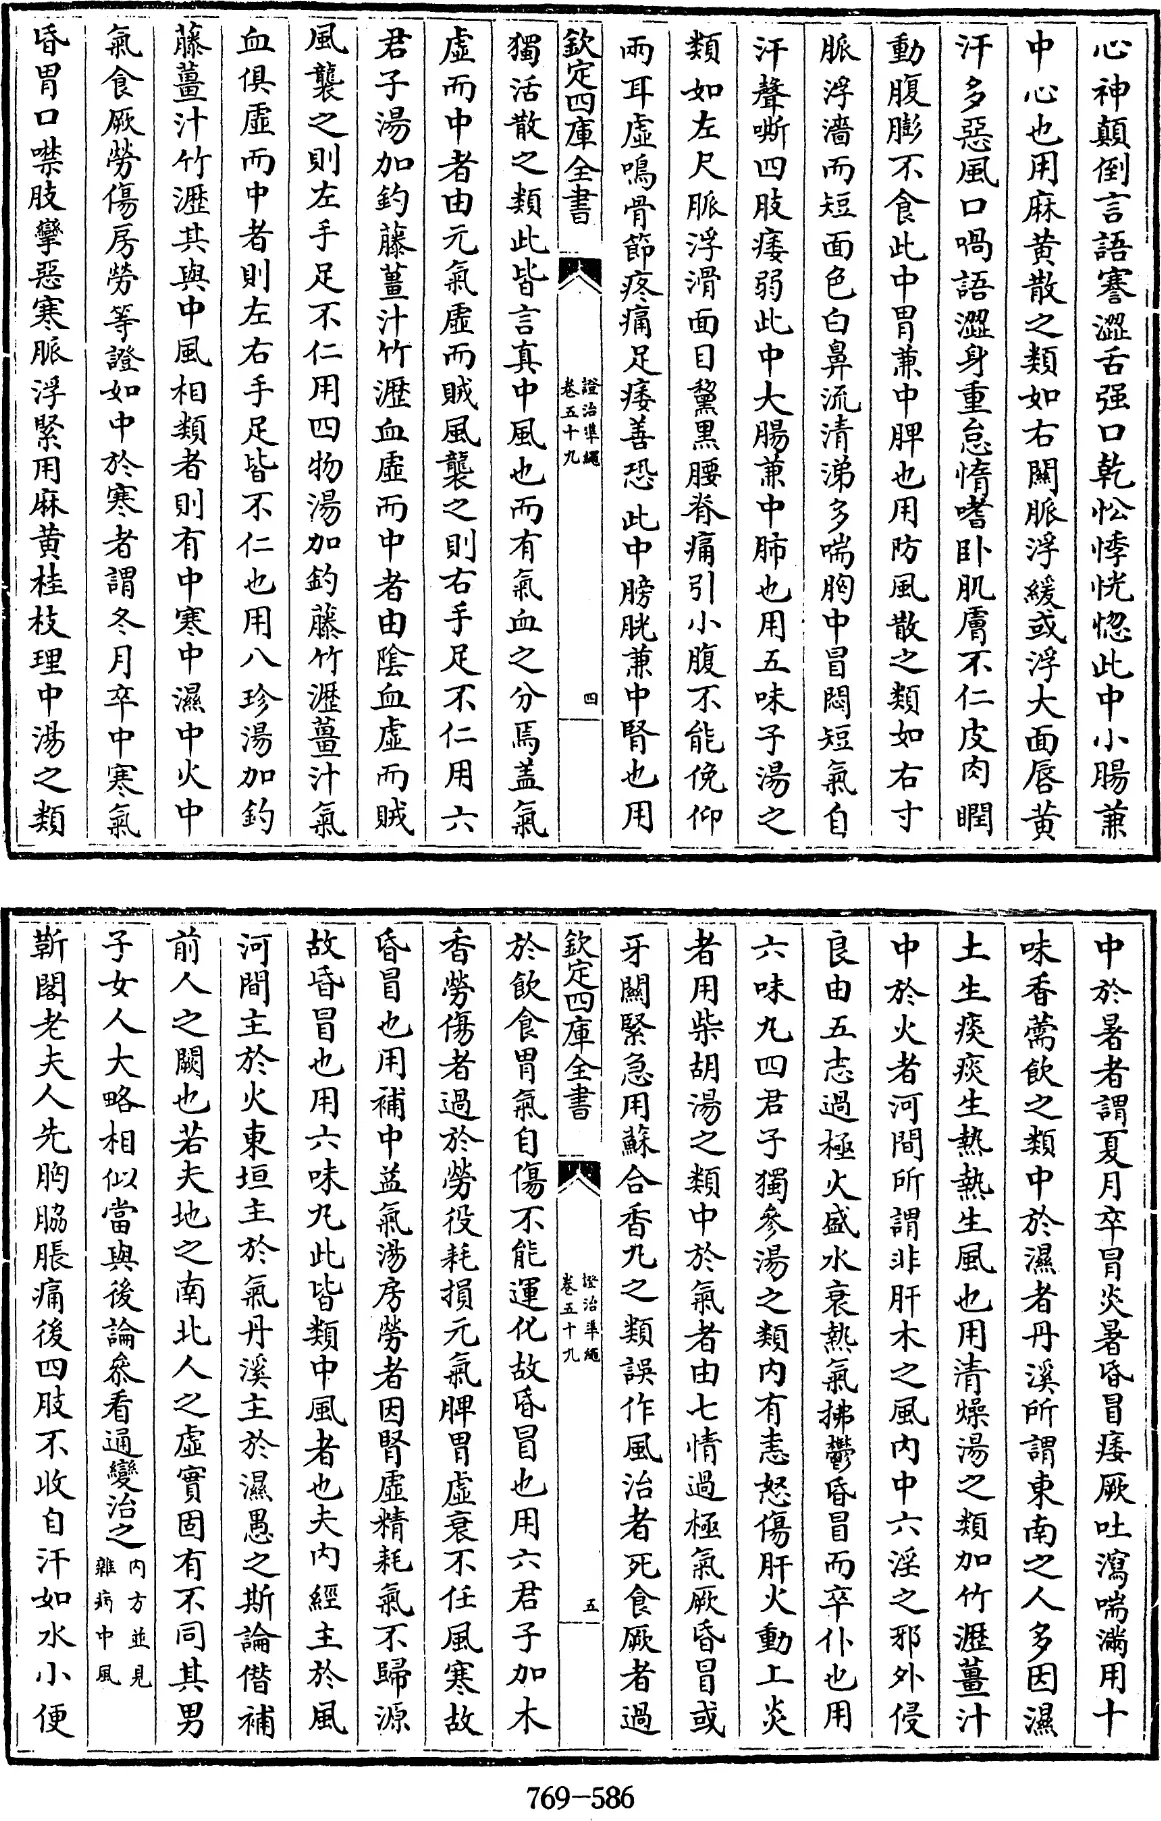 心神顛倒言語蹇澀舌强口乾忪悸恍惚此中小腸兼
中心也用麻黄散之類如右關脈浮緩或浮大面唇黄
汗多惡風口喎語澀身重怠惰嗜卧肌膚不仁皮肉瞤
動腹膨不食此中胃兼中脾也用防風散之類如右寸
脈浮濇而短面色白鼻流清涕多喘胸中冒悶短氣自
汗聲嘶四肢痿弱此中大腸兼中肺也用五味子湯之
類如左尺脈浮滑面目黧黒腰脊痛引小腹不能俛仰
兩耳虛鳴骨節疼痛足痿善恐此中膀胱兼中腎也用
欽定四庫全書
證治準繩
卷五十九
四
獨活散之類此皆言真中風也而有氣血之分焉蓋氣
虛而中者由元氣虛而賊風襲之則右手足不仁用六
君子湯加釣藤薑汁竹瀝血虛而中者由陰血虛而賊
風襲之則左手足不仁用四物湯加釣藤竹瀝薑汁氣
血俱虛而中者則左右手足皆不仁也用八珍湯加釣
藤薑汁竹瀝其與中風相類者則有中寒中濕中火中
氣食厥勞傷房勞等證如中於寒者謂冬月卒中寒氣
昏冒口噤肢攣惡寒脈浮緊用麻黄桂枝理中湯之類
中於暑者謂夏月卒冒炎暑昏冒痿厥吐瀉喘滿用十
味香薷飲之類中於濕者丹溪所謂東南之人多因濕
土生痰痰生熱熱生風也用清燥湯之類加竹瀝薑汁
中於火者河間所謂非肝木之風内中六淫之邪外侵
良由五志過極火盛水衰熱氣拂鬱昏冒而卒仆也用
六味丸四君子獨參湯之類内有恚怒傷肝火動上炎
者用柴胡湯之類中於氣者由七情過極氣厥昏冒或
牙關緊急用蘇合香丸之類誤作風治者死食厥者過
欽定四庫全書
證治準繩
卷五十九
五
於飲食胃氣自傷不能運化故昏冒也用六君子加木
香勞傷者過於勞役耗損元氣脾胃虛衰不任風寒故
昏冒也用補中益氣湯房勞者因腎虛精耗氣不歸源
故昏冒也用六味丸此皆類中風者也夫内經主於風
河間主於火東垣主於氣丹溪主於濕愚之斯論偕補
前人之闕也若夫地之南北人之虛實固有不同其男
子女人大略相似當與後論叅看通變治之内方並見
雜病中風
靳閣老夫人先胸脇脹痛後四肢不收自汗如水小便
769-586